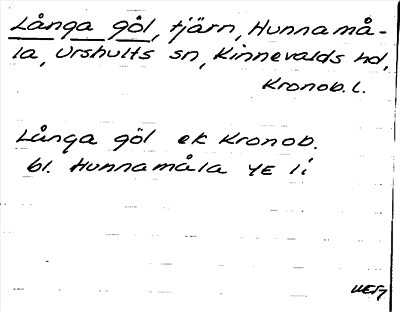 Långa göl, tjärn, Hunnamå-
la, Urshults sn, Kinnevalds hd,
Kronob. l.
Långa göl ek Kronob.
bl. Hunnamåla YE li